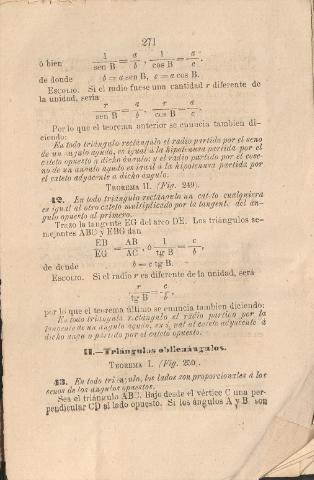 271
ó bien 1/sen B = a/b, 1/cos B = a/c.
de donde b = a sen B, c = a cos B.
ESCOLIO. Si el radio fuese una cantidad r diferente de
la unidad, sería
r/sen B = a/b, r/cos B = a/c.
Por lo que el teorema anterior se enuncia tambien di-
ciendo:
En todo triángulo rectángulo el radio partido por el seno
de un ángulo agudo, es igual á la hipotenusa partida por el
cateto opuesto á dicho ángulo; y el radio partido por el cose-
no de un ángulo agudo es igual á la hipotenusa partida por
el cateto adyacente á dicho ángulo.
TEOREMA II. (Fig. 249).
42. En todo triángulo rectángulo un cateto cualquiera
es igual al otro cateto multiplicado por la tangente del án-
gulo opuesto al primero.
Trazo la tangente EG del arco DE. Los triángulos se-
mejantes ABC y EBG dan
EB/EG = AB/AC, ó 1/tg B = c/b,
de donde b = c tg B.
ESCOLIO. Si el radio r es diferente de la unidad, será
r/tg B = c/b,
por lo que el teorema último se enuncia tambien diciendo:
En todo triángulo rectángulo el radio partido por la
tangente de un ángulo agudo, es igual al cateto adyacente á
dicho ángulo partido por el cateto opuesto.
II.—Triángulos oblicuángulos.
TEOREMA I. (Fig. 250).
43. En todo triángulo, los lados son proporcionales á los
senos de los ángulos opuestos.
Sea el triángulo ABC. Bajo desde el vértice C una per-
pendicular CD al lado opuesto. Si los ángulos A y B son